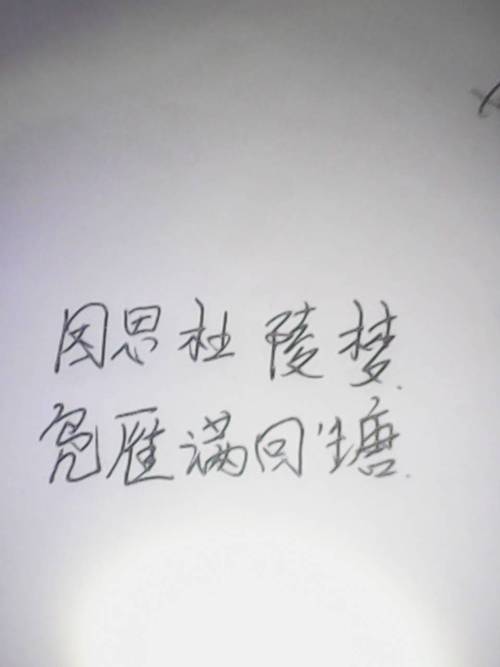 因思杜陵梦
凫雁满回塘